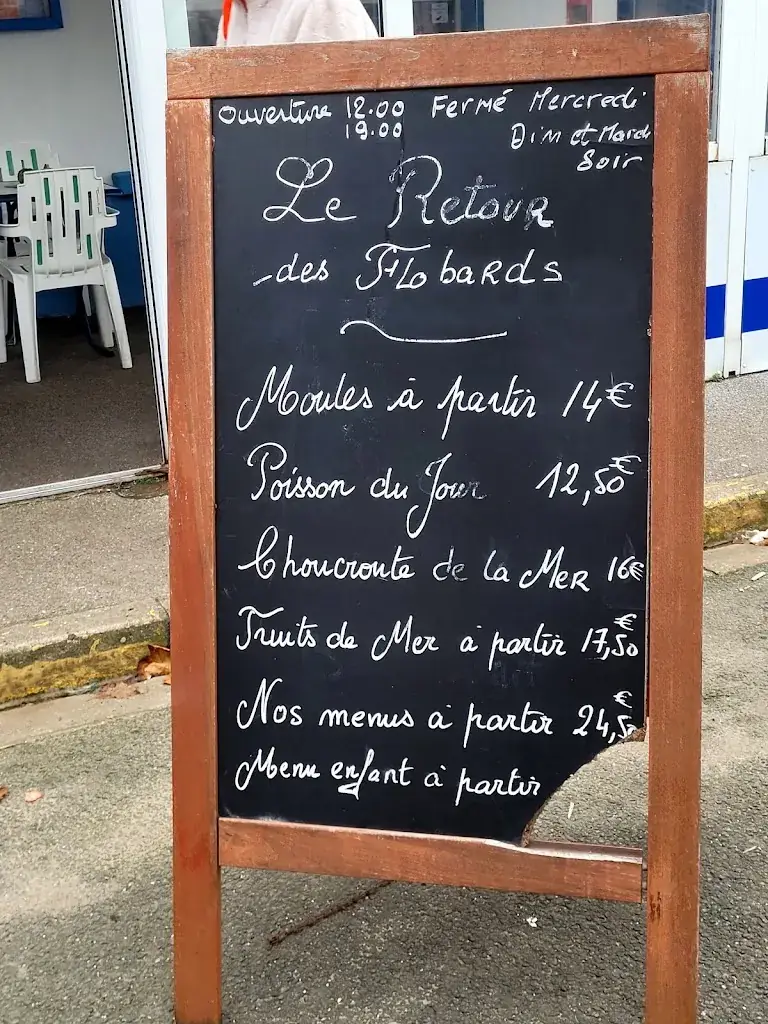 Ouverture 12.00 Fermé Mercredi
19.00 Dim et Mardi
Soir
Le Retour
des Flobards
Moules à partir 14€
Poisson du Jour 12,50€
Choucroute de la Mer 16€
Fruits de Mer à partir 17,50€
Nos menus à partir 24,50€
Menu enfant à partir